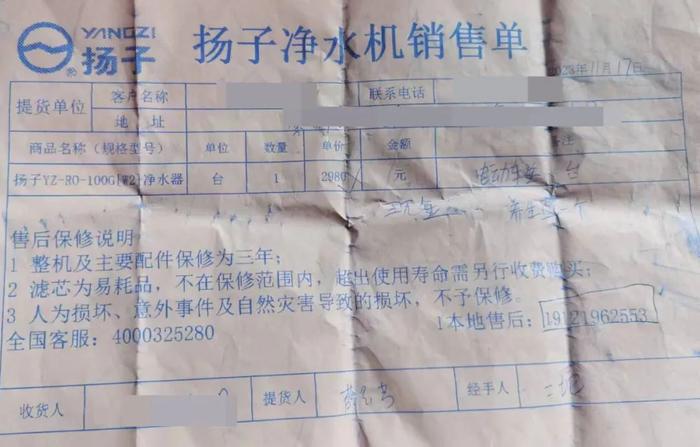 YANGZI
扬子
扬子净水机销售单
2023年11月17日
提货单位 客户名称 联系电话
地 址
商品名称（规格型号） 单位 数量 单价 金额
扬子YZ-RO-100G[W2]净水器 台 1 2980 元 电动车 台
养生 一个
售后保修说明：
1 整机及主要配件保修为三年；
2 滤芯为易耗品，不在保修范围内，超出使用寿命需另行收费购买；
3 人为损坏、意外事件及自然灾害导致的损坏，不予保修。
全国客服：4000325280
1本地售后：19121962553
收货人 提货人 经手人